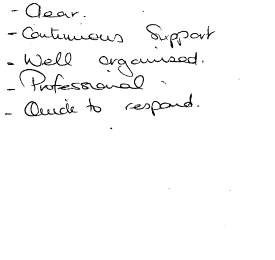 - Clear.
- Continuous Support
- Well organised.
- Professional.
- Quick to respond.